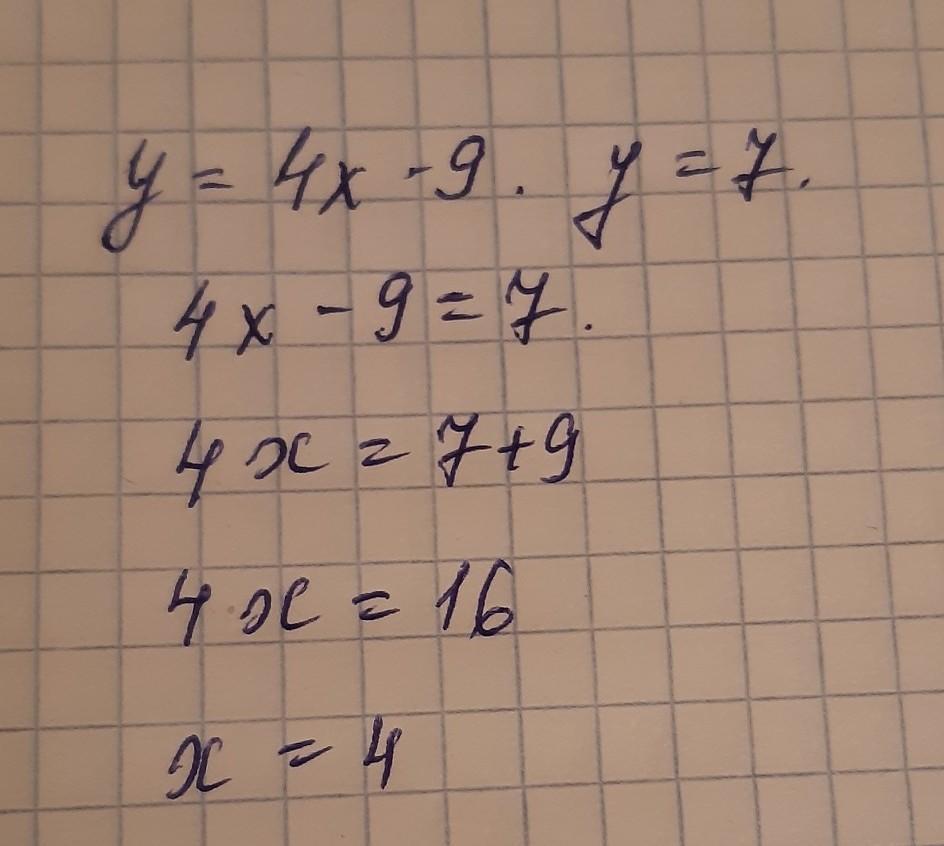 y = 4x - 9. y = 7.
4x - 9 = 7.
4x = 7+9
4x = 16
x = 4